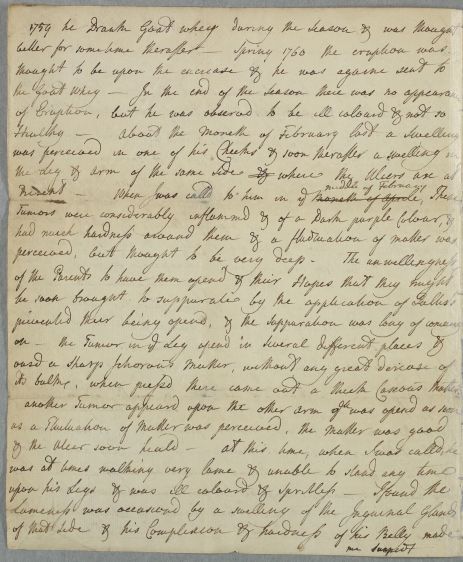 1759 he Drank Goat whey during the Season & was thought
better for some time therafter — Spring 1760 the eruption was
thought to be upon the encrease & he was againe sent to
the Goat Whey — In the end of the Season there was no appearance
of Eruption, but he was observed to be ill coloured & not so
Healthy — about the Moneth of February last a Swelling
was perceived in one of his Cheeks & soon therafter a swelling in
the leg & arm of the same side where the Ulcers are at
present — When I was calld to him in ye middle of February, These
Tumors were considerably inflammed & of a Dark purple Colour, &
had much hardness around them & a fluctuation of matter was
perceived, but thought to be very deep — The unwellingness
of the Parents to have them opend & their Hopes that they might
be soon brought to suppurate by the application of
prevented their being opend, & the suppuration was long of coming
on — the Tumor in ye Leg opend in several different places &
a sharp Ichorous Matter, without any great decrease of
its bulke, when pressd there came out a thick Caseous matter
another Tumor appeard upon the other arm qch was opend as soon
as a Fluctuation of Matter was perceived, the Matter was good
& the Ulcer soon heald — at this time, when I was called, he
was at times walking very lame & unable to stand any time
upon his Legs & was ill coloured & Spiritless — I found the
Lameness was occasiond by a swelling of the Inguinal Glands
of that side & his Complexion & hardness of his Belly made
me suspect